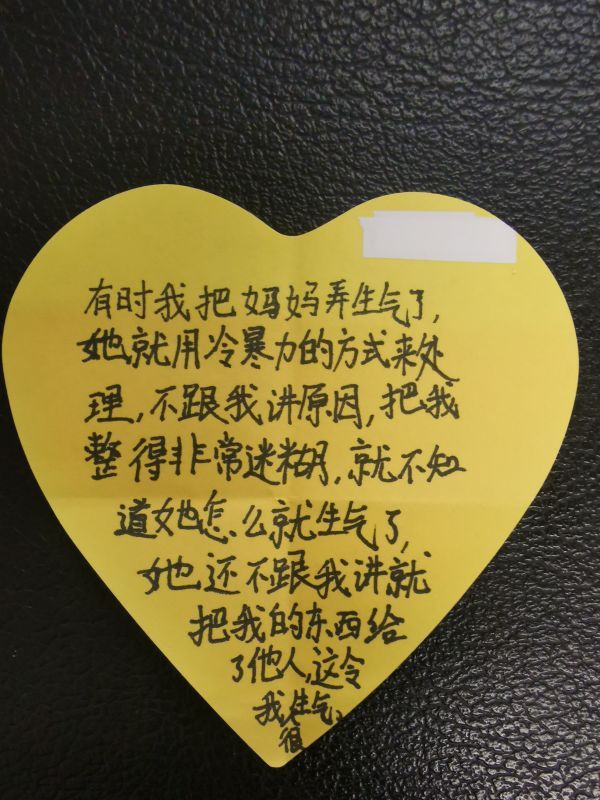 有时我把妈妈弄生气了,
她就用冷暴力的方式来处
理,不跟我讲原因,把我
整得非常迷糊,就不知
道她怎么就生气了,
她还不跟我讲就
把我的东西给
了他人,这令
我生气。
很